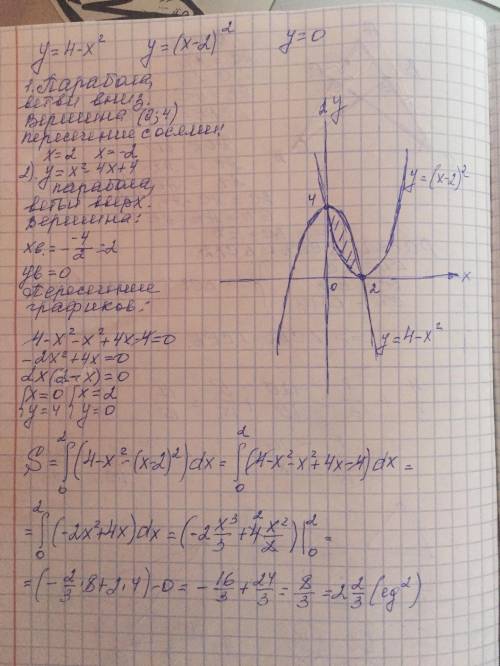 y=4-x² y=(x-2)² y=0
1. Парабола,
ветви вниз.
Вершина (0;4)
пересечение с осями:
x=2 x=-2
2) y=x²-4x+4
парабола,
ветви вверх.
Вершина:
xв.=-\frac{-4}{2}=2
yв=0
Пересечение
графиков:
4-x²-x²+4x-4=0
-2x²+4x=0
2x(2-x)=0
{x=0 {x=2
{y=4 {y=0
y
4
y=(x-2)²
0
2
x
y=4-x²
S=∫₀²(4-x²-(x-2)²)dx=∫₀²(4-x²-x²+4x-4)dx=
=∫₀²(-2x²+4x)dx=(-2\frac{x³}{3}+4\frac{x²}{2})|₀²=
=(-\frac{2}{3}·8+2·4)-0=-\frac{16}{3}+\frac{24}{3}=\frac{8}{3}=2\frac{2}{3}(ед²)